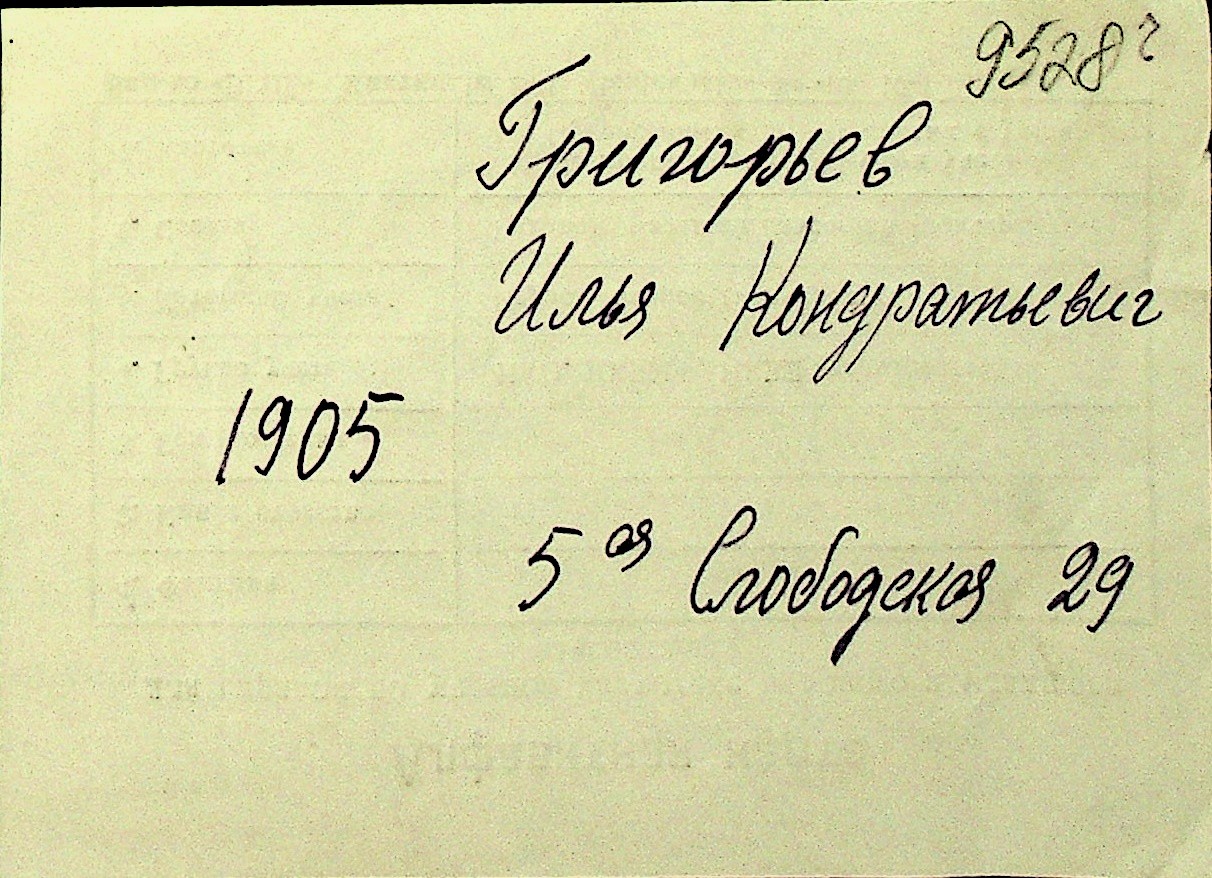 9528
Григорьев
Илья Кондратьевич
1905
5ая Слободская 29